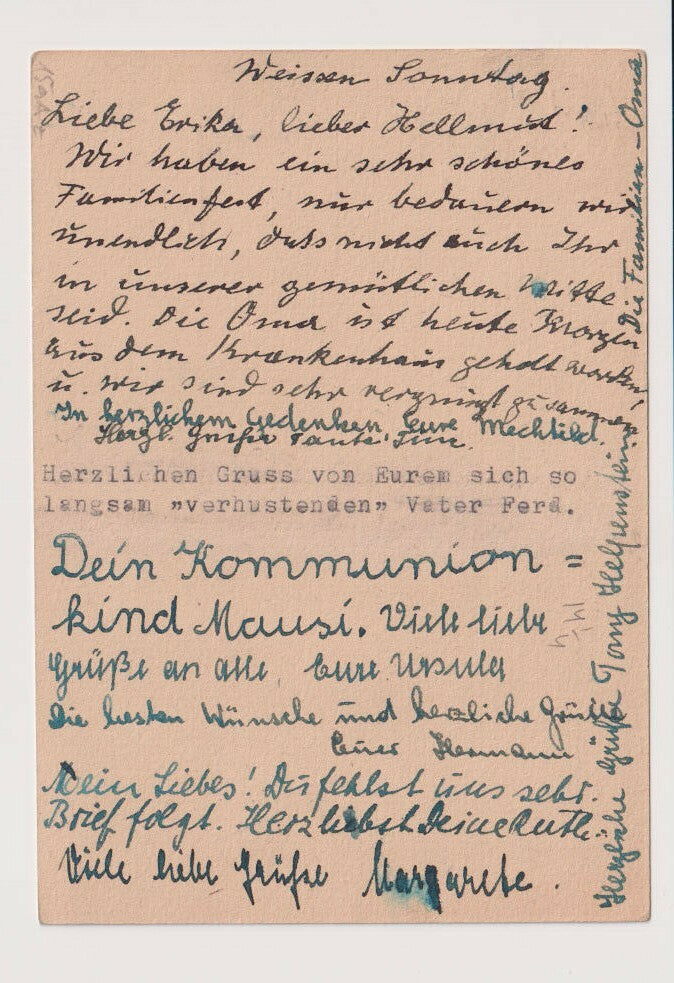 Weissen Sonntag.
Liebe Erika, lieber Hellmut!
Wir haben ein sehr schönes
Familienfest, nur bedauern wir
unendlich, dass nicht auch Ihr
in unserer gemütlichen Mitte
seid. Die Oma ist heute Morgen
aus dem Krankenhaus geholt worden
u. wir sind sehr vergnügt zusammen
In herzlichem Gedenken Eure Mechtild.
Herzl. Grüße Tante
Herzlichen Gruss von Eurem sich so
langsam „verhustenden” Vater Ferd.
Dein Kommunion =
kind Mausi. Viele liebe
Grüße an alle, Eure Ursula
Die besten Wünsche und herzliche Grüße
Euer Hermann
Mein Liebes! Du fehlst uns sehr.
Brief folgt. Herzliebst Deine Ruth.
Viele liebe Grüße Margarete.
Herzliche Grüße Tony
Die Familien-Oma